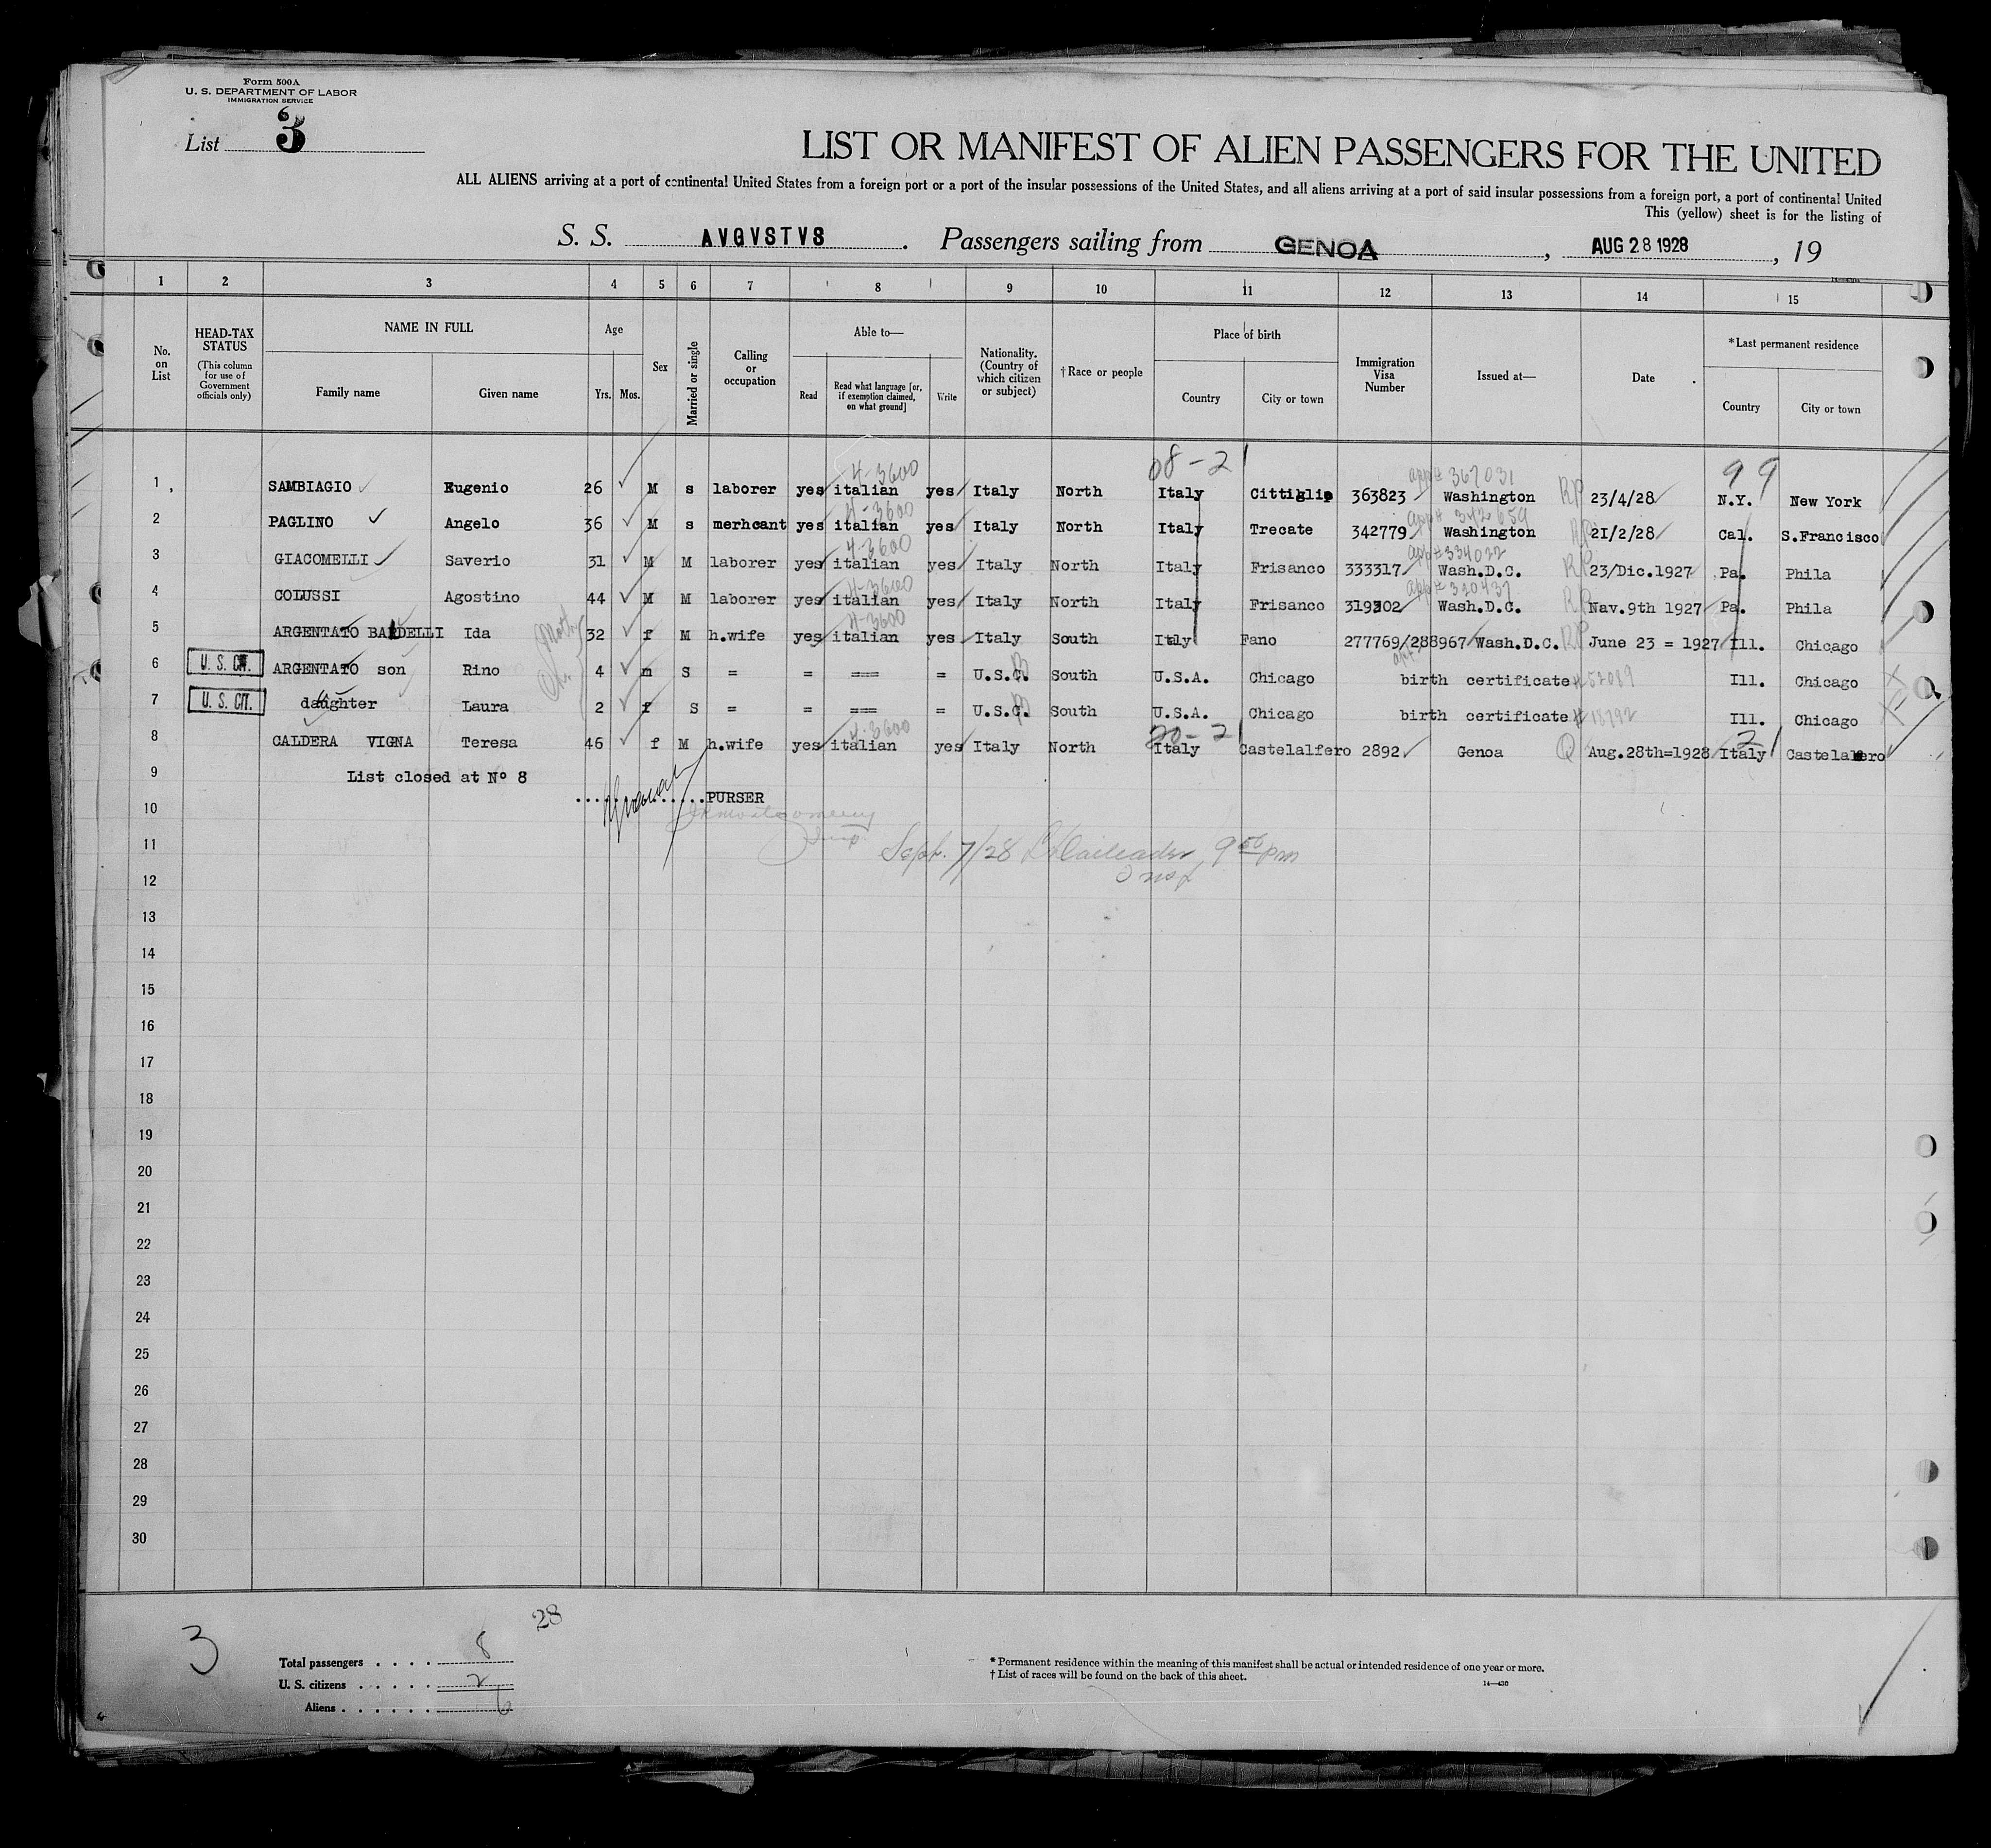 Form 500A
U. S. DEPARTMENT OF LABOR
IMMIGRATION SERVICE
List 3
LIST OR MANIFEST OF ALIEN PASSENGERS FOR THE UNITED
ALL ALIENS arriving at a port of continental United States from a foreign port or a port of the insular possessions of the United States, and all aliens arriving at a port of said insular possessions from a foreign port, a port of continental United
This (yellow) sheet is for the listing of
S. S. AVGVSTVS . Passengers sailing from GENOA , AUG 28 1928 , 19
1 2 3 4 5 6 7 8 9 10 11 12 13 14 15
No. on List
HEAD-TAX STATUS
(This column for use of Government officials only)
NAME IN FULL
Family name Given name
Age
Yrs. Mos.
Sex
Married or single
Calling or occupation
Able to—
Read
Read what language [or, if exemption claimed, on what ground]
Write
Nationality. (Country of which citizen or subject)
†Race or people
Place of birth
Country City or town
Immigration Visa Number
Issued at—
Date
*Last permanent residence
Country City or town
08-21 99
4-3600 app# 367031
1 SAMBIAGIO Eugenio 26 M s laborer yes italian yes Italy North Italy Cittiglio 363823 Washington RP 23/4/28 N.Y. New York
4-3600 app# 342659
2 PAGLINO Angelo 36 M s merhcant yes italian yes Italy North Italy Trecate 342779 Washington RP 21/2/28 Cal. S.Francisco
4-3600 app# 334022
3 GIACOMELLI Saverio 31 M M laborer yes italian yes Italy North Italy Frisanco 333317 Wash.D.C. RP 23/Dic.1927 Pa. Phila
4-3600 app# 320437
4 COLUSSI Agostino 44 M M laborer yes italian yes Italy North Italy Frisanco 319202 Wash.D.C. RP Nav.9th 1927 Pa. Phila
4-3600
5 ARGENTATO BARDELLI Ida 32 f M h.wife yes italian yes Italy South Italy Fano 277769/288967 Wash.D.C. RP June 23 = 1927 Ill. Chicago
6 U. S. CIT. ARGENTATO son Rino 4 m S = = == = U.S.C. South U.S.A. Chicago birth certificate #52089 Ill. Chicago
7 U. S. CIT. daughter Laura 2 f S = = == = U.S.C. South U.S.A. Chicago birth certificate # 18792 Ill. Chicago
4-3600 20-21 2
8 CALDERA VIGNA Teresa 46 f M h.wife yes italian yes Italy North Italy Castelalfero 2892 Genoa Q Aug.28th=1928 Italy Castelalfero
9 List closed at No 8
10 PURSER
11 Sept. 7/28 9 50 pm
12
13
14
15
16
17
18
19
20
21
22
23
24
25
26
27
28
29
30
3 28
Total passengers . . . . 8
U. S. citizens . . . . . 2
Aliens . . . . . . 6
* Permanent residence within the meaning of this manifest shall be actual or intended residence of one year or more.
† List of races will be found on the back of this sheet.
14—430